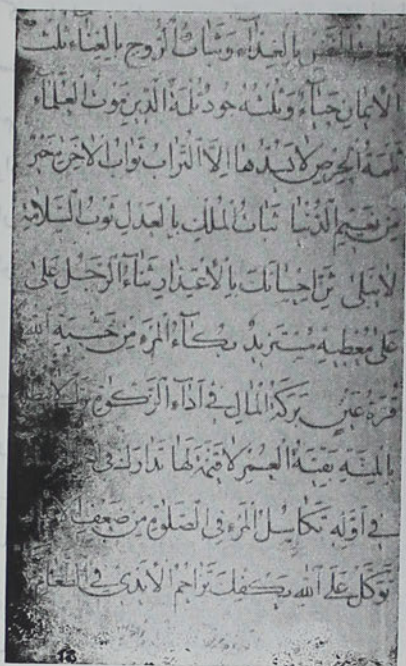 ثبات النفس بالغذاء وثبات الروح بالغناء ثلث
الايمان حياء وثلثه جود ثلمة الدين موت العلماء
ثلمة الحرص لا يسدها الا التراب ثواب الاخرة خير
من نعيم الدنيا ثبات الملك بالعدل ثوب السلامة
لا يبلى ثن احسانك بالاعتذار ثناء الرجل على
على معطيه مستزيد بكاء المرء من خشية الله
قرة عين بركة المال في اداء الزكوة
بالمنة بقية العمر لا قيمة لها تدارك في
في اوله تكاسل المرء في الصلوة من ضعف
توكل على الله يكفك تزاحم الايدي في الطعام